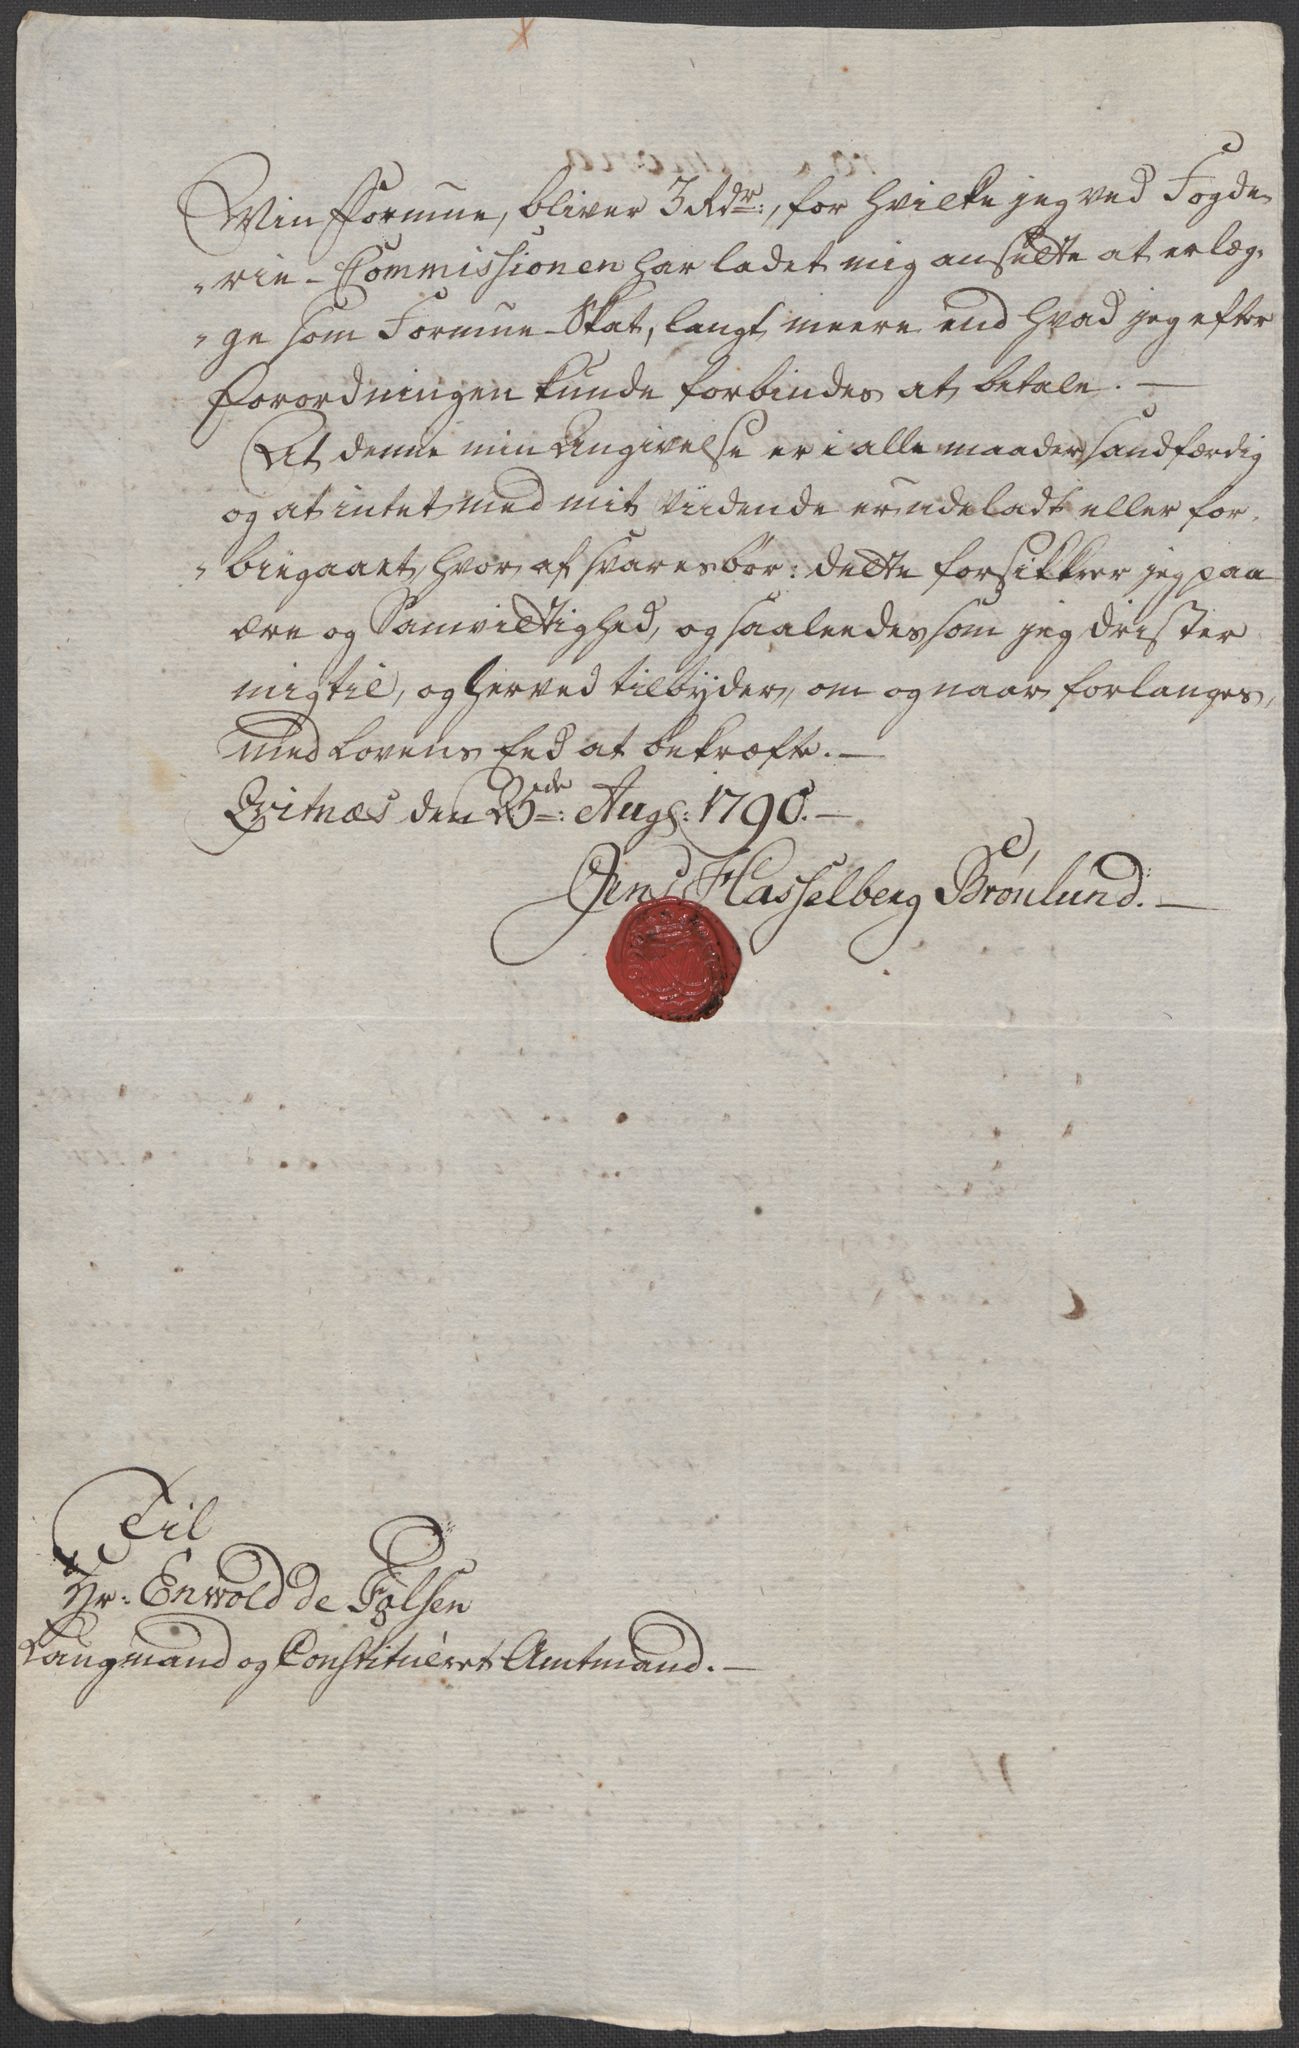 Min Formue, bliver 3 Rdr:, for hvilke jeg ved Fogde-
-rie-Commissionen har ladet mig ansætte at erlæg-
-ge som Formue-Skat, langt meere end hvad jeg efter
Forordningen kunde forbindes at betale. —
At denne min Angivelse er i alle maader sandfærdig
og at intet med mit viidende er udeladt eller for-
-biegaaet, hvor af svares bør: dette forsikkrer jeg paa
ære og Samvittighed, og saaleedes som jeg drister
mig til, og herved tilbyder, om og naar forlanges,
med Lovens Eed at bekræfte. —
Qvitnæs den 25de: Aug: 1790. —
Jens Hasselberg Brönlund. —
Til
Hr: Enwold de Falsen
Laugmand og Constitueret Amtmand. —